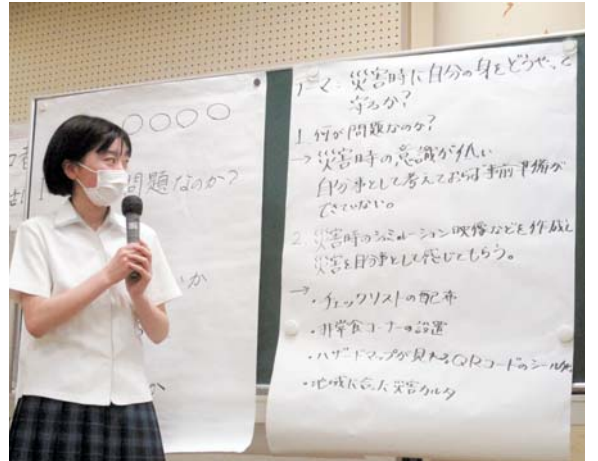 ○○○○
問題なのか?
か
か
テーマ:災害時に自分の身をどうやって
守るか?
1. 何が問題なのか?
→災害時の意識が低い
自分事として考えておらず事前準備が
できていない。
2. 災害時のシミュレーション映像などを作成し
災害を自分事として感じてもらう。
→・チェックリストの配布
・非常食コーナーの設置
・ハザードマップが見れるQRコードのシール
・地域に合った災害カルタ